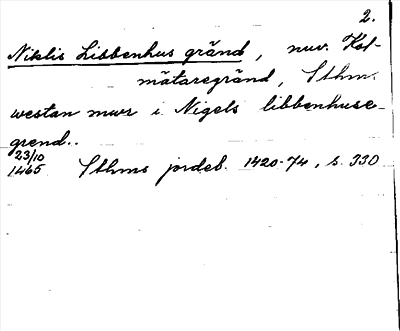 2.
Niklis Libbenhus gränd, nuv. Kol-
mätaregränd, Sthm.
westan mwr i Nigels libbenhuse-
grend..
23/10
1465 Sthms jordeb. 1420-74, s. 330